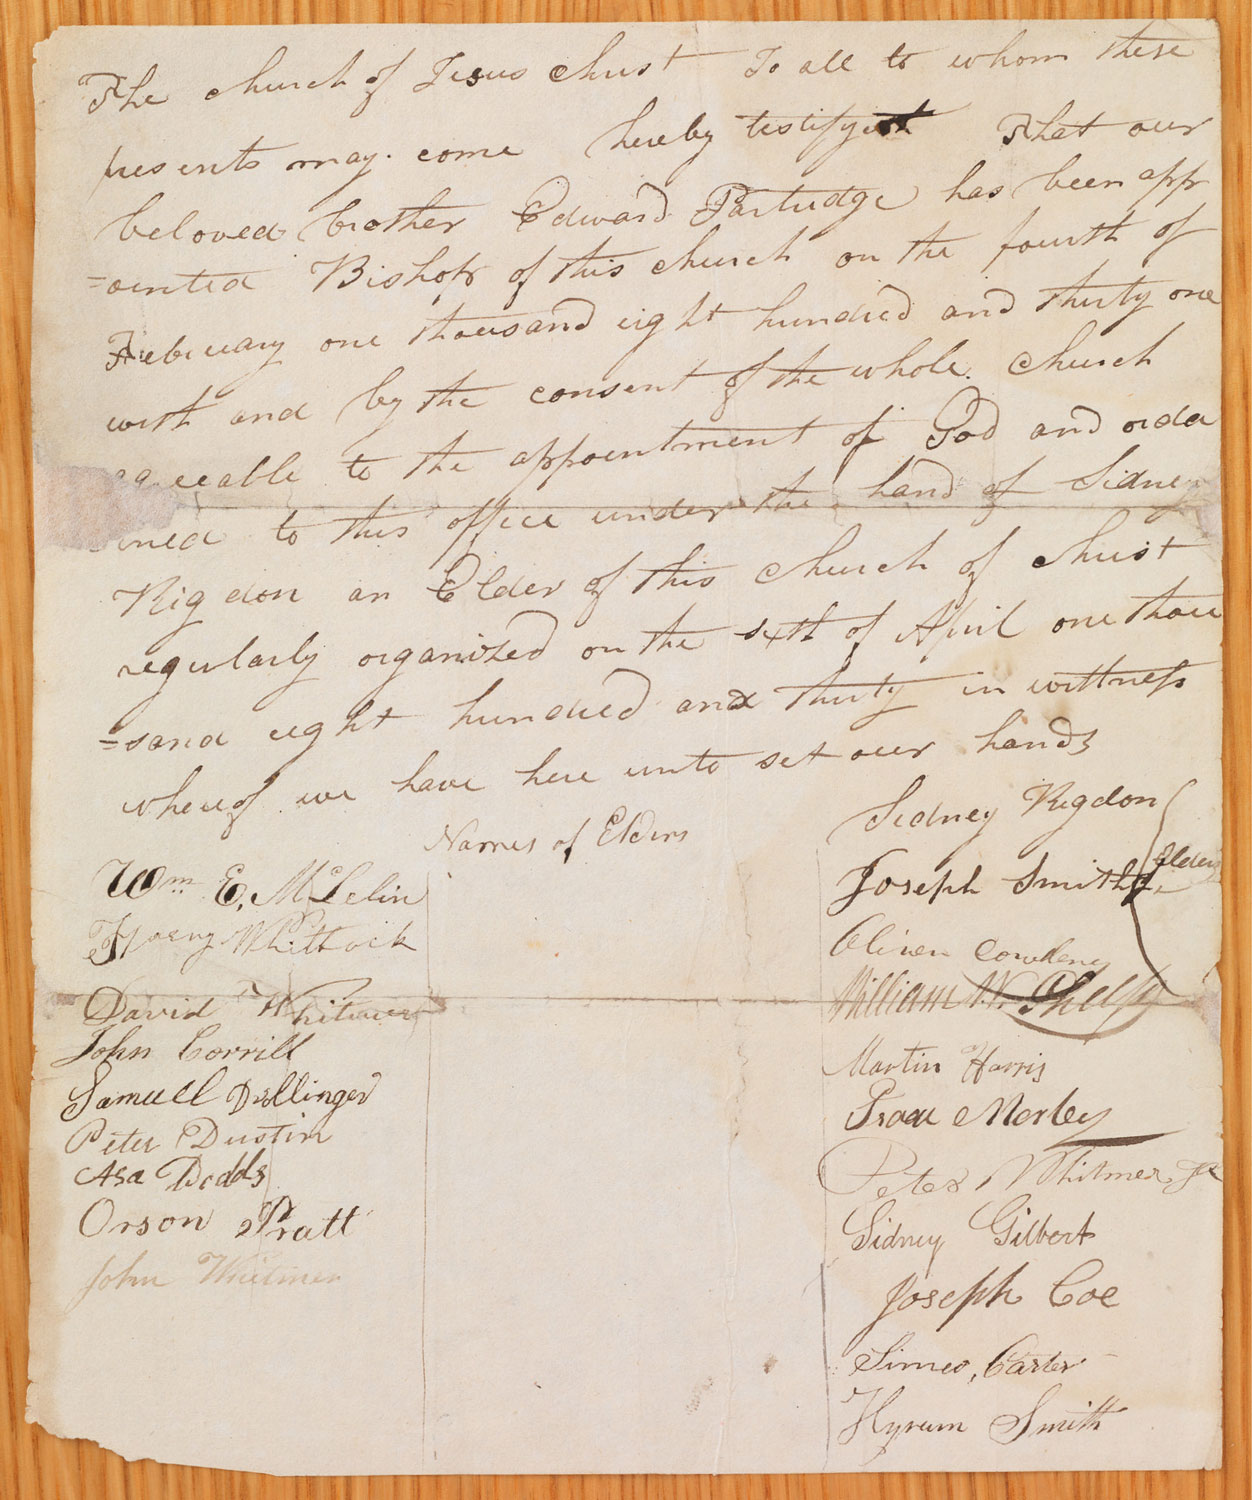 The church of Jesus christ To all to whom these
presents may. come hereby testify That our
beloved brother Edward Partridge has been app
=ointed Bishop of this church on the fourth of
February one thousand eight hundred and thirty one
with and by the consent of the whole. church
agreeable to the appointment of God and orda
ined to this office under the hand of Sidney
Rigdon an Elder of this church of christ
regularly organized on the sixth of April one thou
=sand eight hundred and thirty in wittness
whereof we have here unto set our hands
Names of Elders
Wm E. McLelin
Harvy Whitlock
David Whitmer
John Corrill
Samuel
Peter Dustin
Asa Dodds
Orson Pratt
John Whitmer
Sidney Rigdon
Joseph Smith Jr. Elders
Oliver Cowdery
William W. Phelps
Martin Harris
Isaac Morley
Peter Whitmer Jr
Sidney Gilbert
Joseph Coe
Simeo, Carter
Hyrum Smith